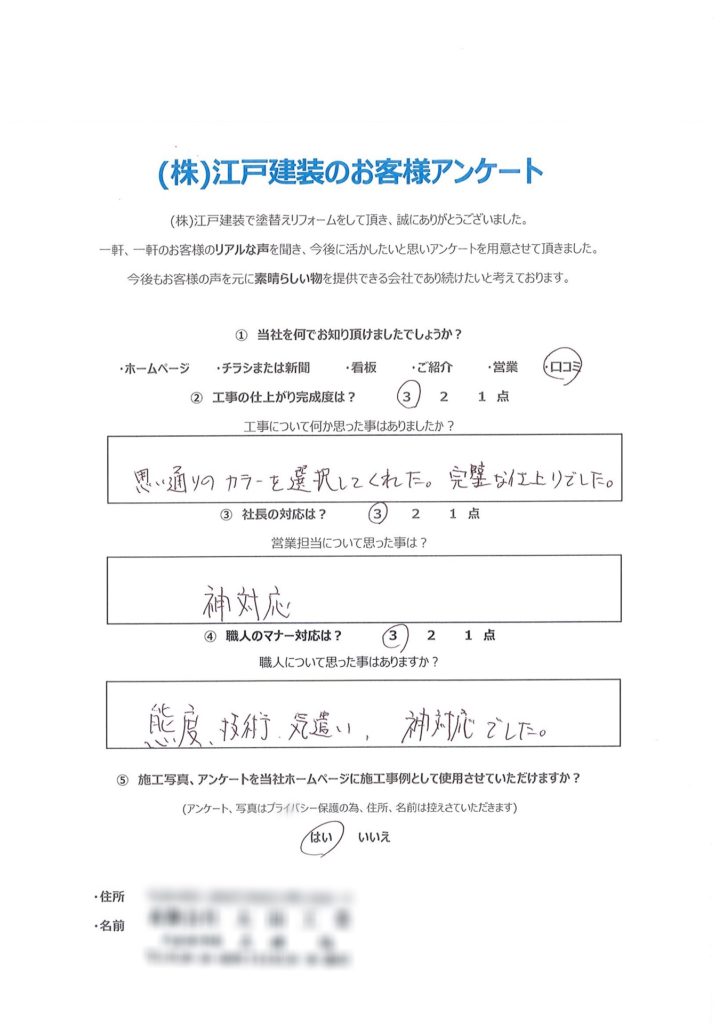 (株)江戸建装のお客様アンケート
(株)江戸建装で塗替えリフォームをして頂き、誠にありがとうございました。
一軒、一軒のお客様のリアルな声を聞き、今後に活かしたいと思いアンケートを用意させて頂きました。
今後もお客様の声を元に素晴らしい物を提供できる会社であり続けたいと考えております。
① 当社を何でお知り頂けましたでしょうか？
・ホームページ ・チラシまたは新聞 ・看板 ・ご紹介 ・営業 ・口コミ
② 工事の仕上がり完成度は？ 3 2 1 点
工事について何か思った事はありましたか？
思い通りのカラーを選択してくれた。完璧な仕上りでした。
③ 社長の対応は？ 3 2 1 点
営業担当について思った事は？
神対応
④ 職人のマナー対応は？ 3 2 1 点
職人について思った事はありますか？
態度、技術、気遣い、神対応でした。
⑤ 施工写真、アンケートを当社ホームページに施工事例として使用させていただけますか？
(アンケート、写真はプライバシー保護の為、住所、名前は控えさていただきます)
はい いいえ
・住所
・名前